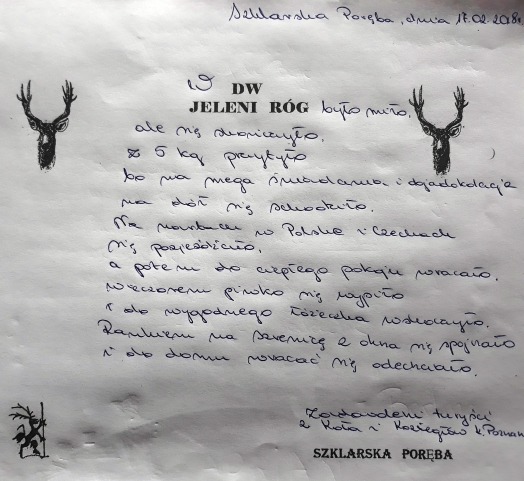 Szklarska Poręba, dnia 17.02.2018r
W DW
JELENI RÓG było miło,
ale się skończyło.
Z 5 kg przytyło
bo na mega śniadania i obiadokolacje
na dół się schodziło.
Na nartach w Polsce i Czechach
się pojeździło,
a potem do ciepłego pokoju wracało.
Wieczorem piwko się wypiło
i do wygodnego łóżeczka wskoczyło.
Rankiem na Szrenicę z okna się spojrzało
i do domu wracać się odechciało.
Zadowoleni turyści
z Koła i Koziegłów k. Poznan
SZKLARSKA PORĘBA